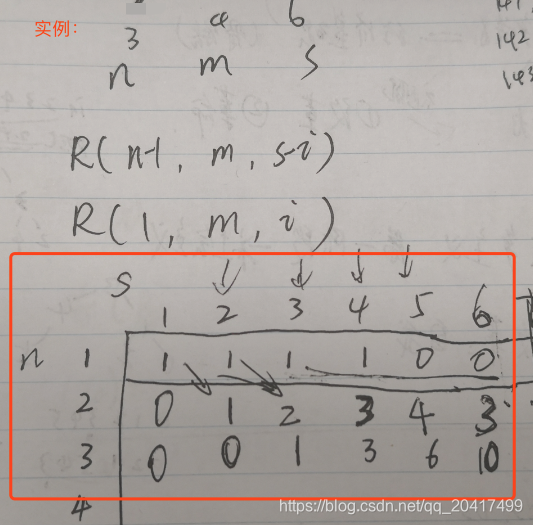 实例：
3 4 6
n m s
141
142
143
R(n-1, m, s-i)
R(1, m, i)
s 1 2 3 4 5 6
n 1 1 1 1 1 0 0
2 0 1 2 3 4 3
3 0 0 1 3 6 10
4
https://blog.csdn.net/qq_20417499